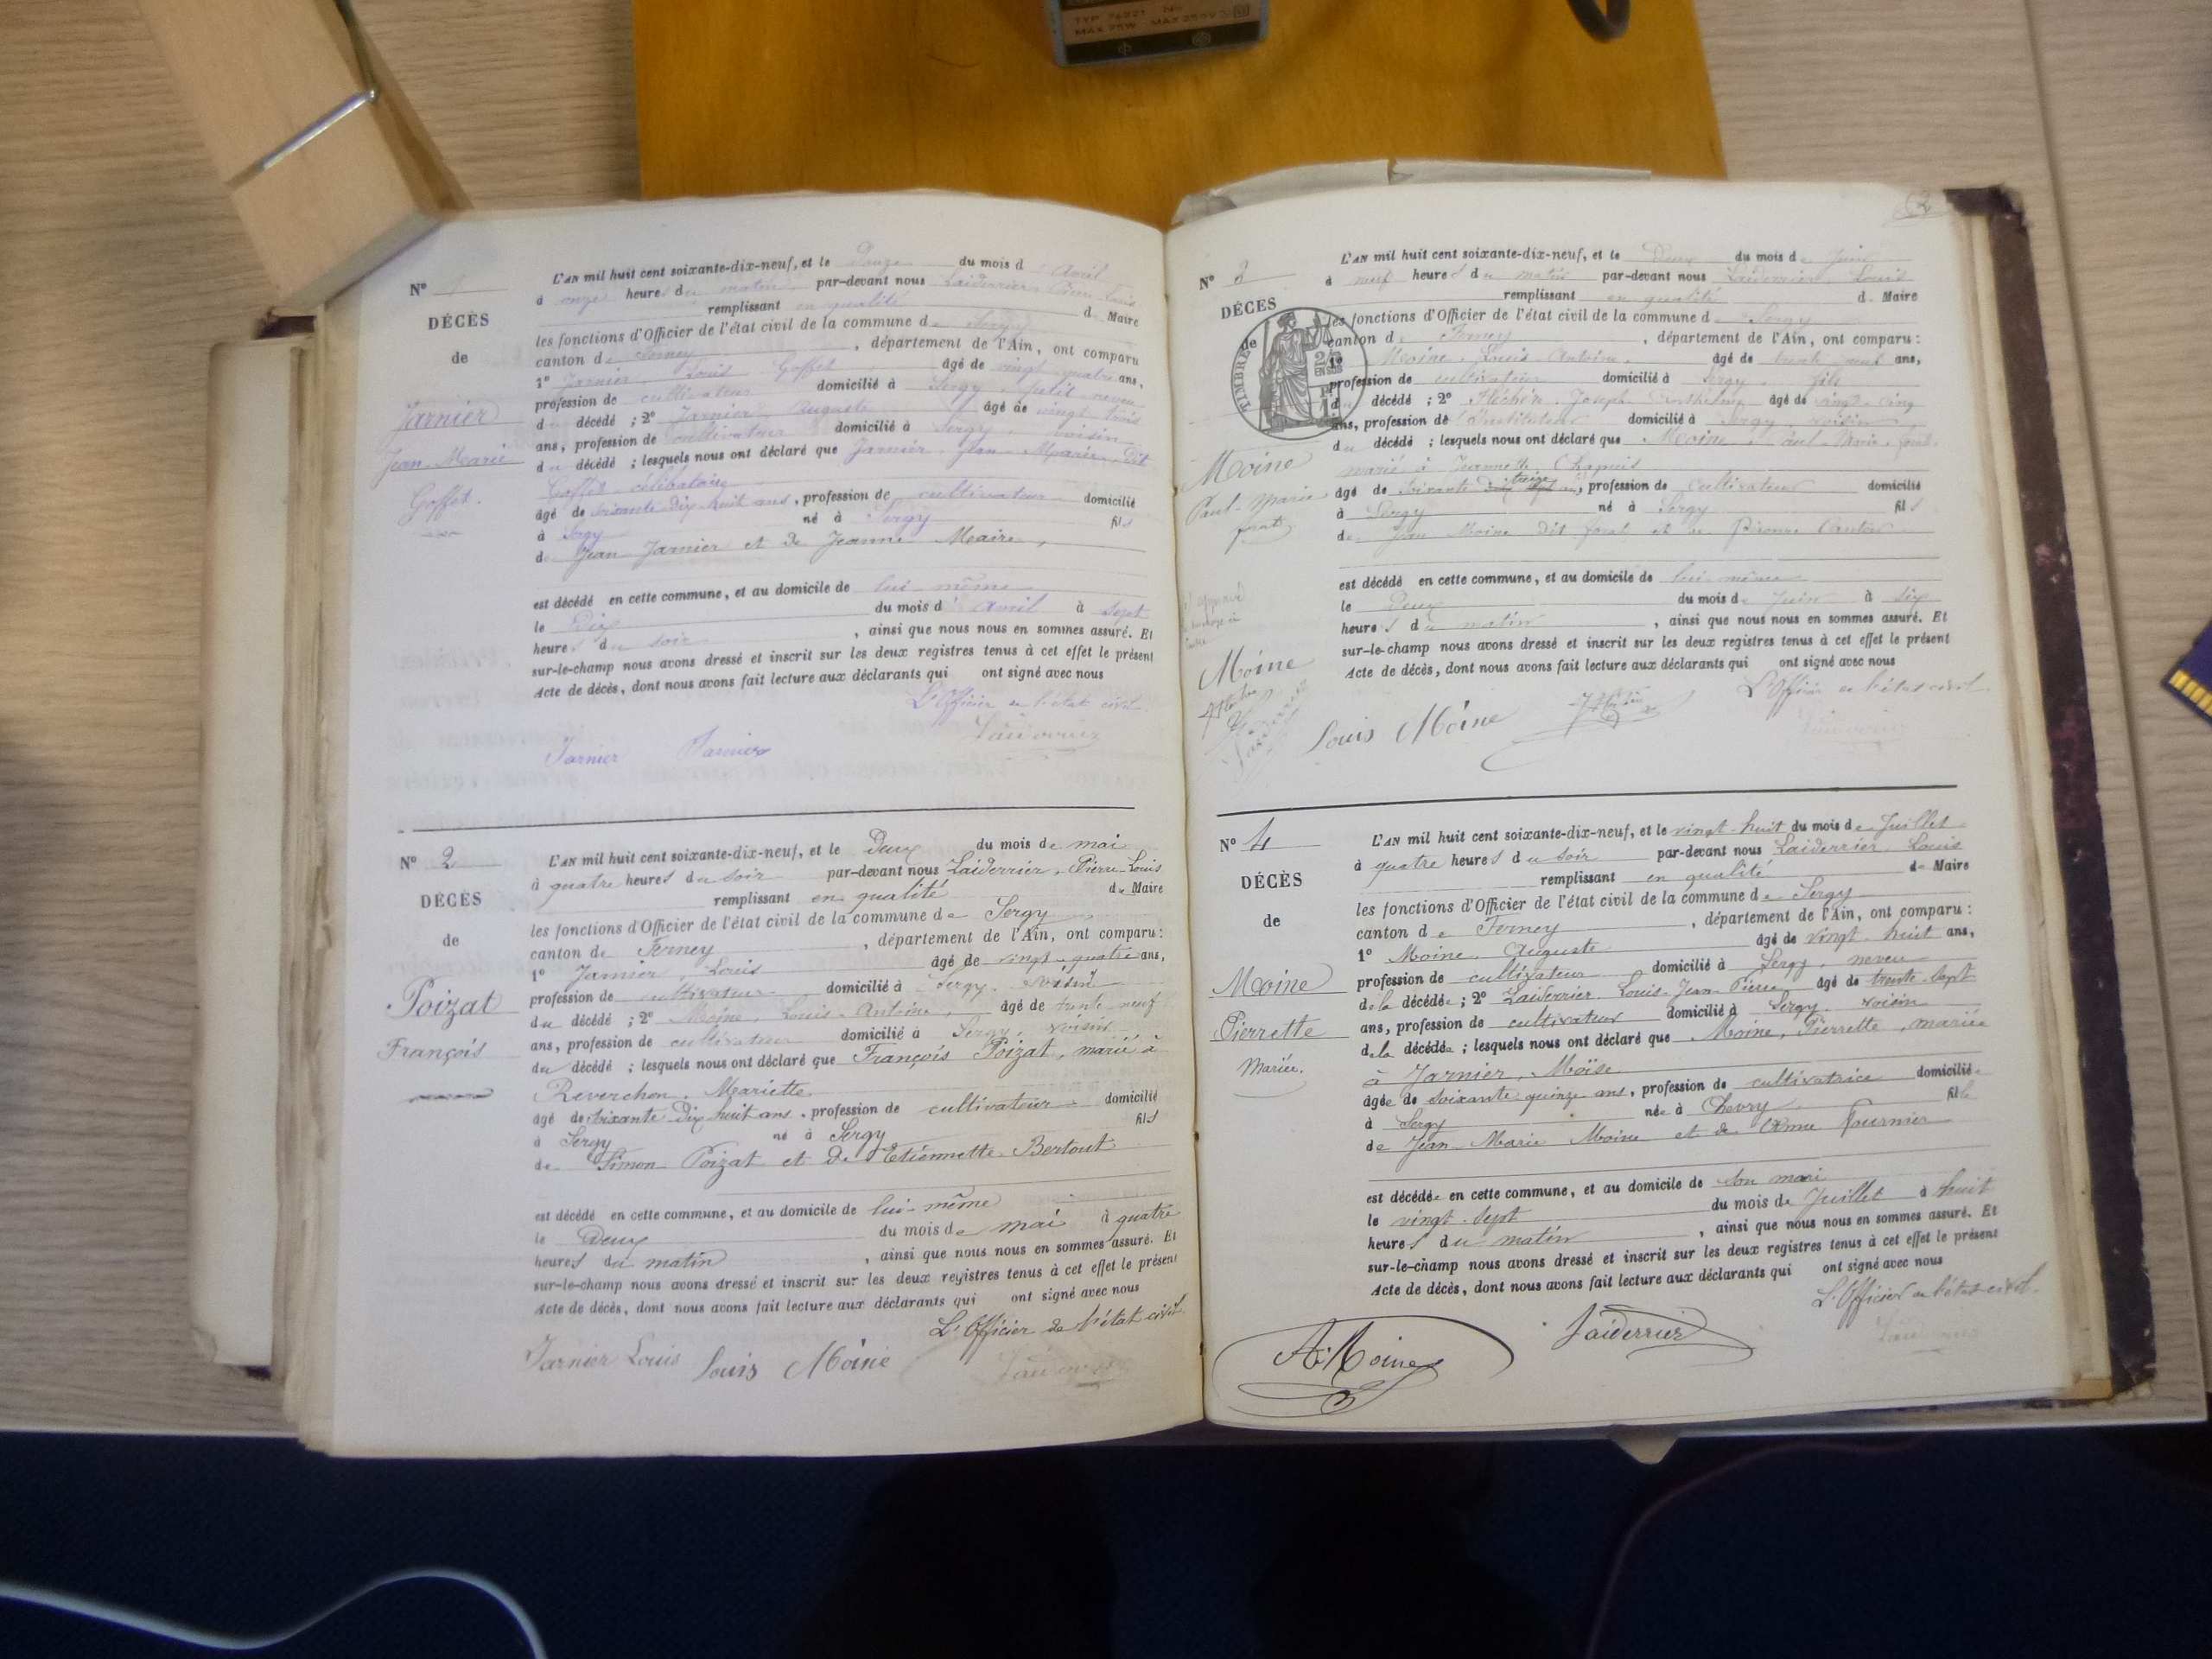 TYP 76821 No
MAX 75W MAX 250V
N° 1
DÉCÈS
de
Jarnier
Jean-Marie
Goffet.
L'AN mil huit cent soixante-dix-neuf, et le Douze du mois d'Avril
à onze heures du matin par-devant nous Laiderrier, Pierre Louis
remplissant en qualité de Maire
les fonctions d'Officier de l'état civil de la commune de Sergy
canton de Ferney, département de l'Ain, ont comparu
1° Jarnier Louis Goffet âgé de vingt-quatre ans,
profession de cultivateur domicilié à Sergy petit-neveu
du décédé ; 2° Jarnier Auguste âgé de vingt trois
ans, profession de cultivateur domicilié à Sergy, voisin
du décédé ; lesquels nous ont déclaré que Jarnier Jean Marie dit
Goffet célibataire
âgé de soixante-dix-huit ans, profession de cultivateur domicilié
à Sergy né à Sergy fils
de Jean Jarnier et de Jeanne Maire,
est décédé en cette commune, et au domicile de lui-même
le Dix du mois d'Avril à sept
heures du soir, ainsi que nous nous en sommes assuré. Et
sur-le-champ nous avons dressé et inscrit sur les deux registres tenus à cet effet le présent
Acte de décès, dont nous avons fait lecture aux déclarants qui ont signé avec nous
L'Officier de l'état civil
Jarnier Jarnier Laiderrier
N° 2
DÉCÈS
de
Poizat
François
L'AN mil huit cent soixante-dix-neuf, et le Deux du mois de mai
à quatre heures du soir par-devant nous Laiderrier, Pierre-Louis
remplissant en qualité de Maire
les fonctions d'Officier de l'état civil de la commune de Sergy
canton de Ferney, département de l'Ain, ont comparu :
1° Jarnier, Louis âgé de vingt-quatre ans,
profession de cultivateur domicilié à Sergy, voisin
du décédé ; 2° Moine, Louis-Antoine, âgé de trente-neuf
ans, profession de cultivateur domicilié à Sergy, voisin
du décédé ; lesquels nous ont déclaré que François Poizat, marié à
Reverchon, Mariette
âgé de soixante-Dix huit ans, profession de cultivateur domicilié
à Sergy né à Sergy fils
de Simon Poizat et de Etiennette Bertout
est décédé en cette commune, et au domicile de lui-même
le Deux du mois de mai à quatre
heures du matin, ainsi que nous nous en sommes assuré. Et
sur-le-champ nous avons dressé et inscrit sur les deux registres tenus à cet effet le présent
Acte de décès, dont nous avons fait lecture aux déclarants qui ont signé avec nous
L'Officier de l'état civil.
Jarnier Louis Louis Moine Laiderrier
2
N° 3
DÉCÈS
de
TIMBRE
2/10
EN SUS
Moine
Paul-Marie
forat
Moine
L'AN mil huit cent soixante-dix-neuf, et le Deux du mois de Juin
à neuf heures du matin par-devant nous Laiderrier, Louis
remplissant en qualité de Maire
les fonctions d'Officier de l'état civil de la commune de Sergy
canton de Ferney, département de l'Ain, ont comparu :
1° Moine, Louis Antoine, âgé de trente neuf ans,
profession de cultivateur domicilié à Sergy, fils
du décédé ; 2° Joseph âgé de vingt-cinq
ans, profession d'Instituteur domicilié à Sergy voisin
du décédé ; lesquels nous ont déclaré que Moine, Paul-Marie-forat
marié à Jeannette Chapuis
âgé de soixante treize, profession de cultivateur domicilié
à Sergy né à Sergy fils
de Jean Moine dit forat et de
est décédé en cette commune, et au domicile de lui-même
le Deux du mois de Juin à six
heures du matin, ainsi que nous nous en sommes assuré. Et
sur-le-champ nous avons dressé et inscrit sur les deux registres tenus à cet effet le présent
Acte de décès, dont nous avons fait lecture aux déclarants qui ont signé avec nous
L'Officier de l'état civil
Louis Moine Laiderrier
N° 4
DÉCÈS
de
Moine
Pierrette
Mariée.
L'AN mil huit cent soixante-dix-neuf, et le vingt-huit du mois de Juillet
à quatre heures du soir par-devant nous Laiderrier Louis
remplissant en qualité de Maire
les fonctions d'Officier de l'état civil de la commune de Sergy
canton de Ferney, département de l'Ain, ont comparu :
1° Moine Auguste âgé de vingt-huit ans,
profession de cultivateur domicilié à Sergy, neveu
de la décédée ; 2° Laiderrier Louis-Jean-Pierre âgé de trente-sept
ans, profession de cultivateur domicilié à Sergy voisin
de la décédée ; lesquels nous ont déclaré que Moine, Pierrette, mariée
à Jarnier, Moïse
âgée de soixante quinze ans, profession de cultivatrice domiciliée
à Sergy née à Chevry fille
de Jean-Marie Moine et de Fournier
est décédée en cette commune, et au domicile de son mari
le vingt-sept du mois de Juillet à huit
heures du matin, ainsi que nous nous en sommes assuré. Et
sur-le-champ nous avons dressé et inscrit sur les deux registres tenus à cet effet le présent
Acte de décès, dont nous avons fait lecture aux déclarants qui ont signé avec nous
L'Officier de l'état civil.
A. Moine Laiderrier Laiderrier